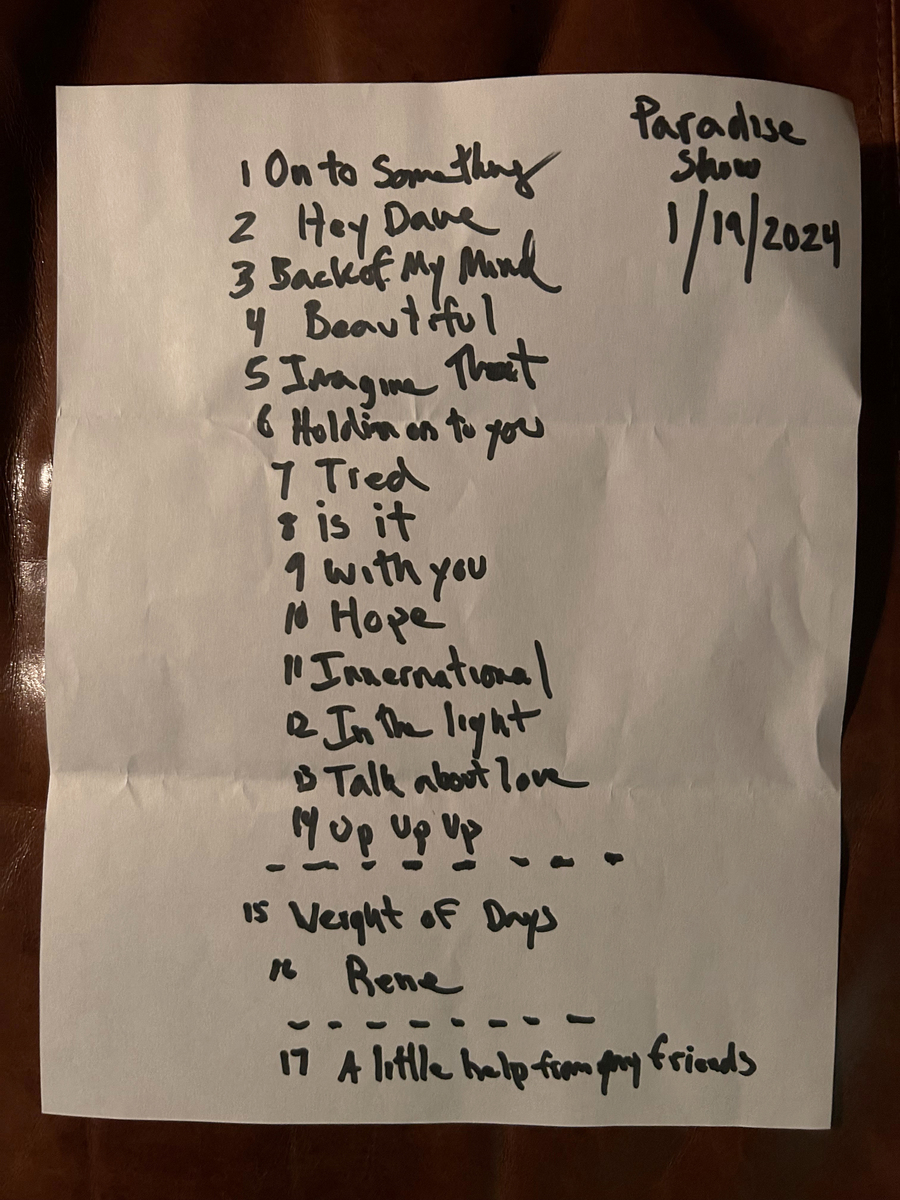 Paradise
Show
1/19/2024
1 On to Something
2 Hey Dave
3 Back of My Mind
4 Beautiful
5 Imagine That
6 Holdin on to you
7 Tired
8 is it
9 with you
10 Hope
11 Innernational
12 In the light
13 Talk about love
14 Up Up Up
- - - - - - - -
15 Weight of Days
16 Rene
- - - - - - - -
17 A little help from my friends